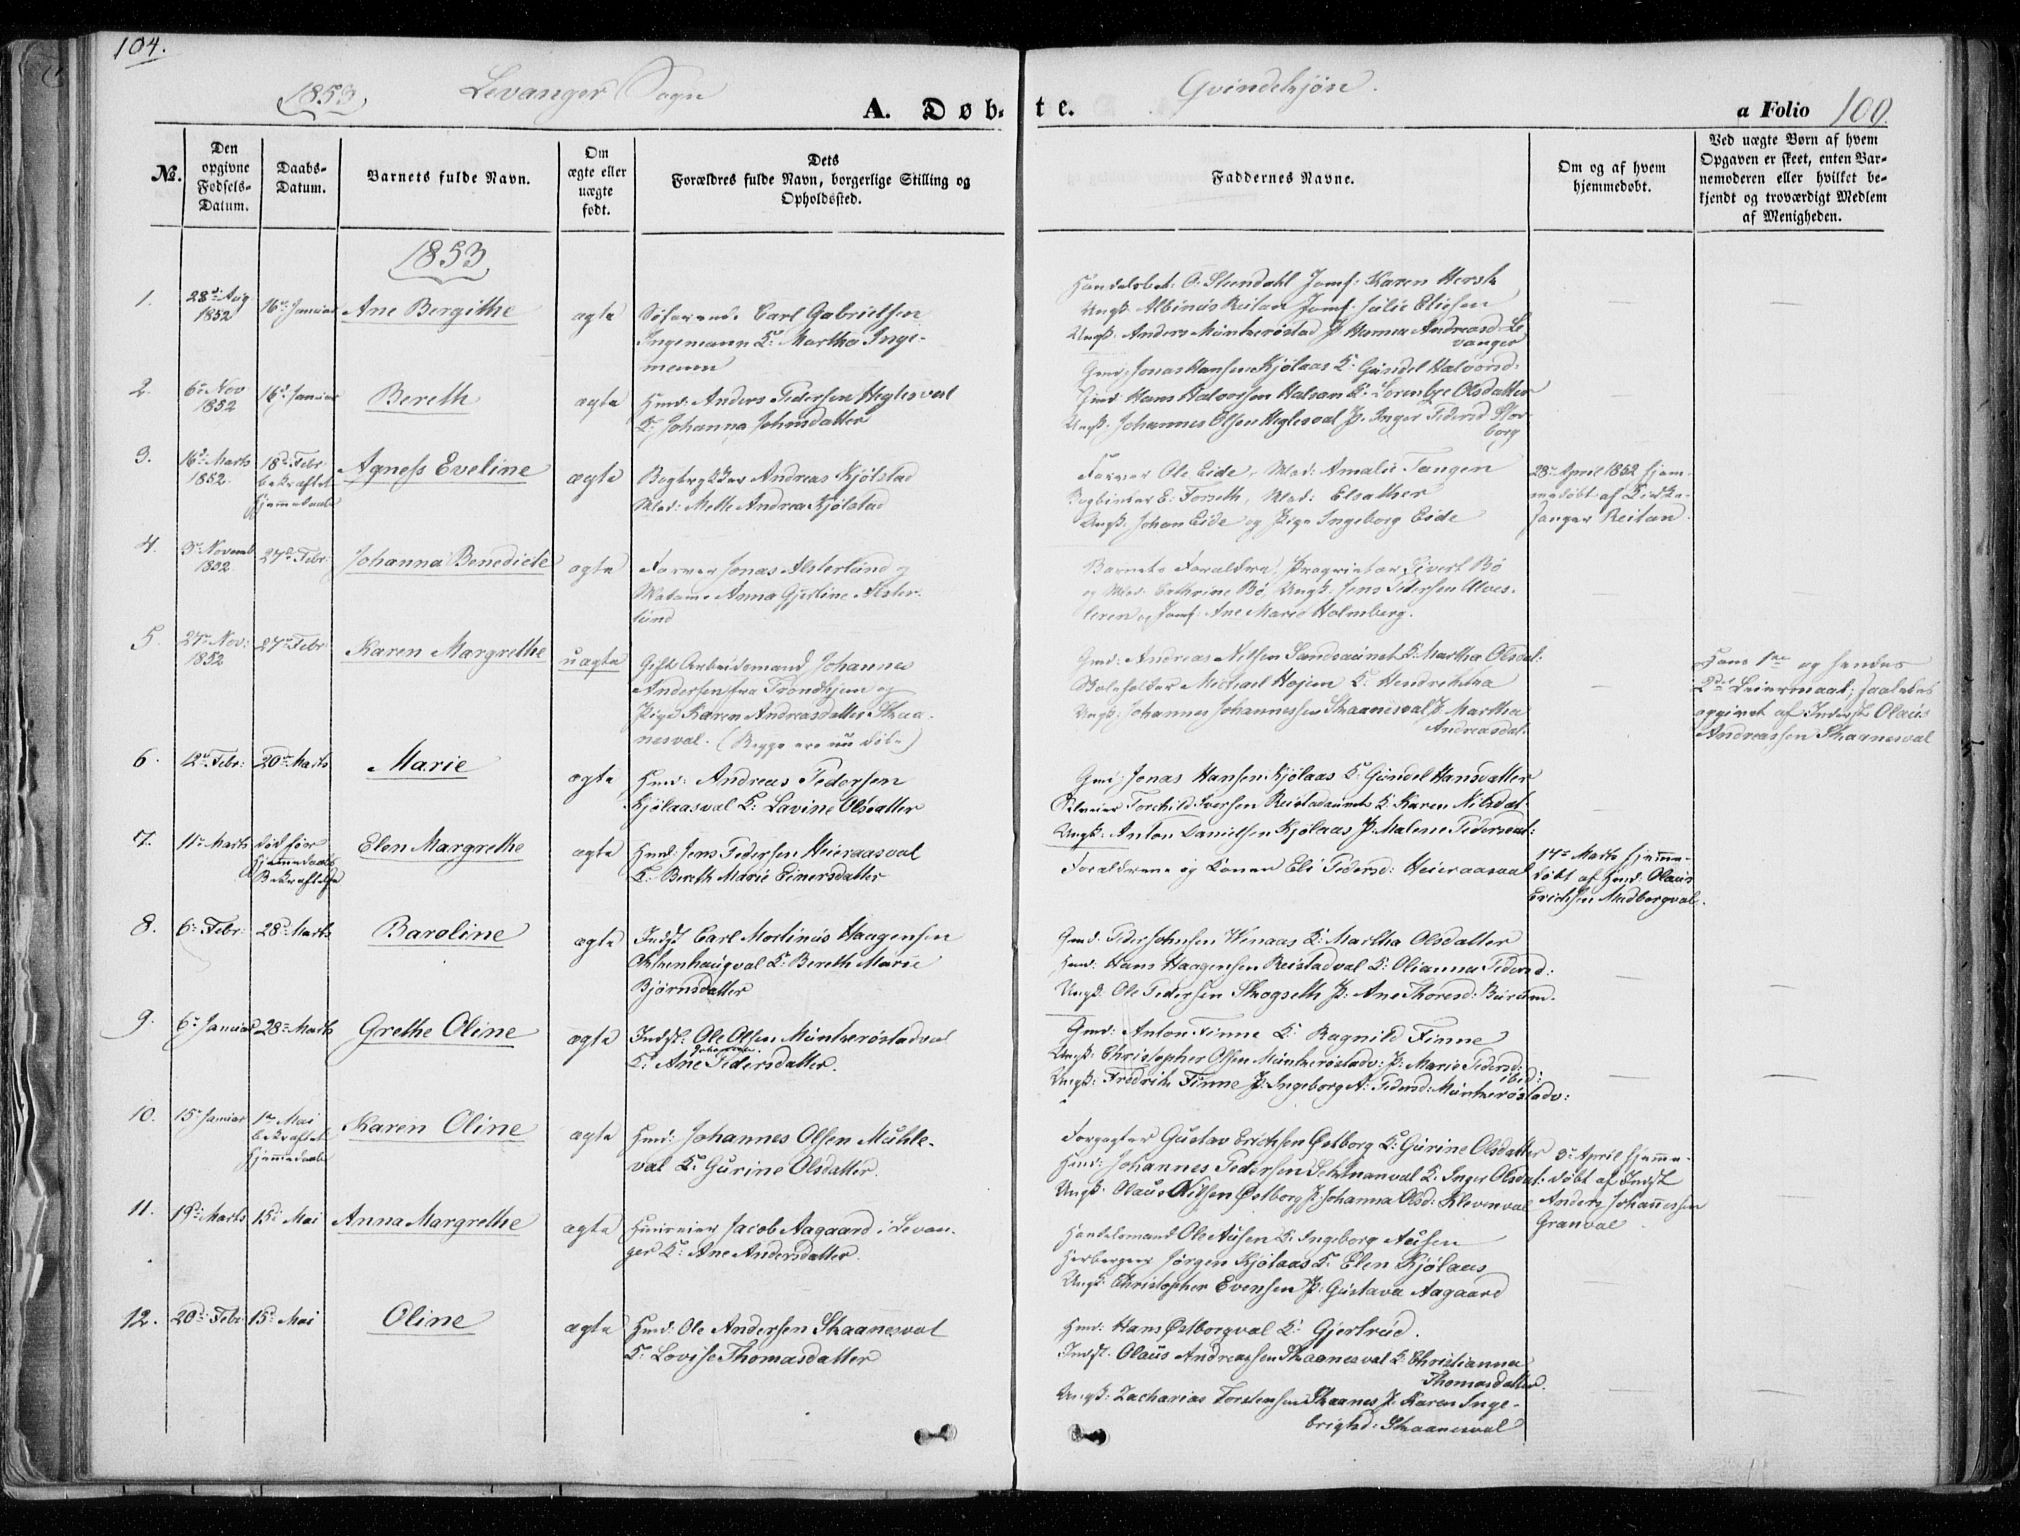 104.
1853 Levanger Sogn
A. Døb-
te.
Qvindekjøn.
a Folio 100.
№.
Den opgivne Fødsels-Datum.
Daabs-Datum.
Barnets fulde Navn.
Om ægte eller uægte født.
Dets Forældres fulde Navn, borgerlige Stilling og Opholdssted.
Faddernes Navne.
Om og af hvem hjemmedøbt.
Ved uægte Børn af hvem Opgaven er skeet, enten Barnemoderen eller hvilket bekjendt og troværdigt Medlem af Menigheden.
1853
1. 28de Aug 1852 16de Januar Ane Bergithe ægte
Søfarende Carl Gabrielsen
Ingemann K: Martha Inge-
mann
Handelsbet: O. Steendahl Jomf: Karen Hersk
Ungk: Albinus Reitan Jomf: Julie Eliesen
Ungk: Anders Munkerøstad P. Hanna Andreasd: Le
vanger
2. 6te Nov 1852 16de Januar Bereth ægte
Hmd: Anders Pedersen Heglesval
K: Johanna Johnsdatter
Gmd: Jonas Hansen Kjølaas K: Gundel Halvorsd:
Hmd: Hans Halvorsen Halsan K: Lorentze Olsdatter
Ungk: Johannes Olsen Heglesval P: Inger Pedersd:
borg
3. 16de Marts 1852 18de Febr. bekræftet Hjemmedaab Agness Eveline ægte
Bogtrykker Andreas Kjølstad
Mad: Mette Andrea Kjølstad
Farver Ole Eide, Mad: Amalie Tangen
Bogbinder E: Forseth, Mad: Elsather
Ungk: Johan Eide og Pige Ingeborg Eide
28de April 1852 hjem-
medøbt af Kirke-
sanger Reitan
4. 3de Novemb 1852 27de Febr. Johanna Benedicte ægte
Farver Jonas Alsterlund og
Madame Anna Gjertine Alster-
lund
Barnets Forældre, Proprietær Sivert Bø
og Mad: Cathrine Bø, Ungk: Jens Pedersen Alves-
leren og Jomf: Ane Marie Holmberg.
5. 27de Nov: 1852 27de Febr Karen Margrethe uægte
Gift Arbeidsmand Johannes
Andersen fra Trondhjem og
Pige Karen Andreasdatter Skaa-
nesval. (Begge ere nu døde)
Gmd: Andreas Nilsen Sandsaunet K: Martha Olsdat:
Boleholder Michael Højem K: Hendrikka
Ungk: Johannes Johannessen Skaanesval P. Martha
Andreasdat:
Hans 1ste og hendes
2det Leiermaal; saaledes
opgivet af Inderst Olaus
Andreassen Skaanesval
6. 12te Febr: 20de Marts Marie ægte
Hmd: Andreas Pedersen
Kjølaasval K: Lavine Olsdatter
Gmd: Jonas Hansen Kjølaas K: Gundel Hansdatter
Selveier Torchild Iversen Reistadaunet K: Karen Nilsdat:
Ungk: Anton Danielsen Kjølaas P. Malene Pedersdat:
7. 11te Marts død før Hjemmedaabs Bekræftelse Elen Margrethe ægte
Hmd: Jens Pedersen Heieraasval
K: Bereth Marie Einersdatter
Forældrene og Konen Eli Pedersd: Heieraasval
17de Marts hjemme-
døbt af Hmd: Olaus
Erichsen Mudborgval.
8. 6te Febr: 28de Marts Baroline ægte
Indst Carl Mortinus Haagensen
Okkenhaugval K: Bereth Marie
Bjørnsdatter
Gmd: Peder Johnsen Winaas K: Martha Olsdatter
Hmd: Hans Haagensen Reistadval K: Olianna Pedersd:
Ungk: Ole Pedersen Skogseth P: Ane Thoresd: Burstm.
9. 6te Januar 28de Marts Grethe Oline ægte
Indst: Ole Olsen Munkerøstadval
K: Ane Johanna Pedersdatter.
Gmd: Anton Finne K: Ragnild Finne
Ungk: Christopher Olsen Munkerøstadv: P: Marie Pedersd:
ibid:
Ungk: Fredrik Finne P: Ingeborg A: Pedersd: Munkerøstadv:
10. 15de Januar 1ste Mai bekræftet Hjemmedaab Karen Oline ægte
Hmd: Johannes Olsen Muhle-
val K: Gurine Olsdatter.
Forpagter Gustav Erichsen Østborg K: Gurine Olsdatter
Hmd: Johannes Pedersen Salmanval K: Inger Olsdat:
Ungk: Olaus Nilsen Østborg P. Johanna Olsd: Klevenval
3de April hjemme-
døbt af Indst
Anders Johannessen
Granval
11. 19de Marts 15de Mai Anna Margrethe ægte
Huuseier Jacob Aagaard i Levan-
ger K: Ane Andersdatter.
Handelsmand Ole Ausen K: Ingeborg Ausen
Herberger Jørgen Kjølaas K: Elen Kjølaas
Ungk: Christopher Evensen P: Gustava Aagaard
12. 20de Febr 15de Mai Oline ægte
Hmd: Ole Andersen Skaanesval
K: Lovise Thomasdatter
Hmd: Hans Østborgval K: Gjertrud.
Indst. Olaus Andreassen Skaanesval K: Christianna
Thomasdatter.
Ungk: Zacharias Torstensen Skaanes P. Karen Inge-
brigtsd: Skaanesval